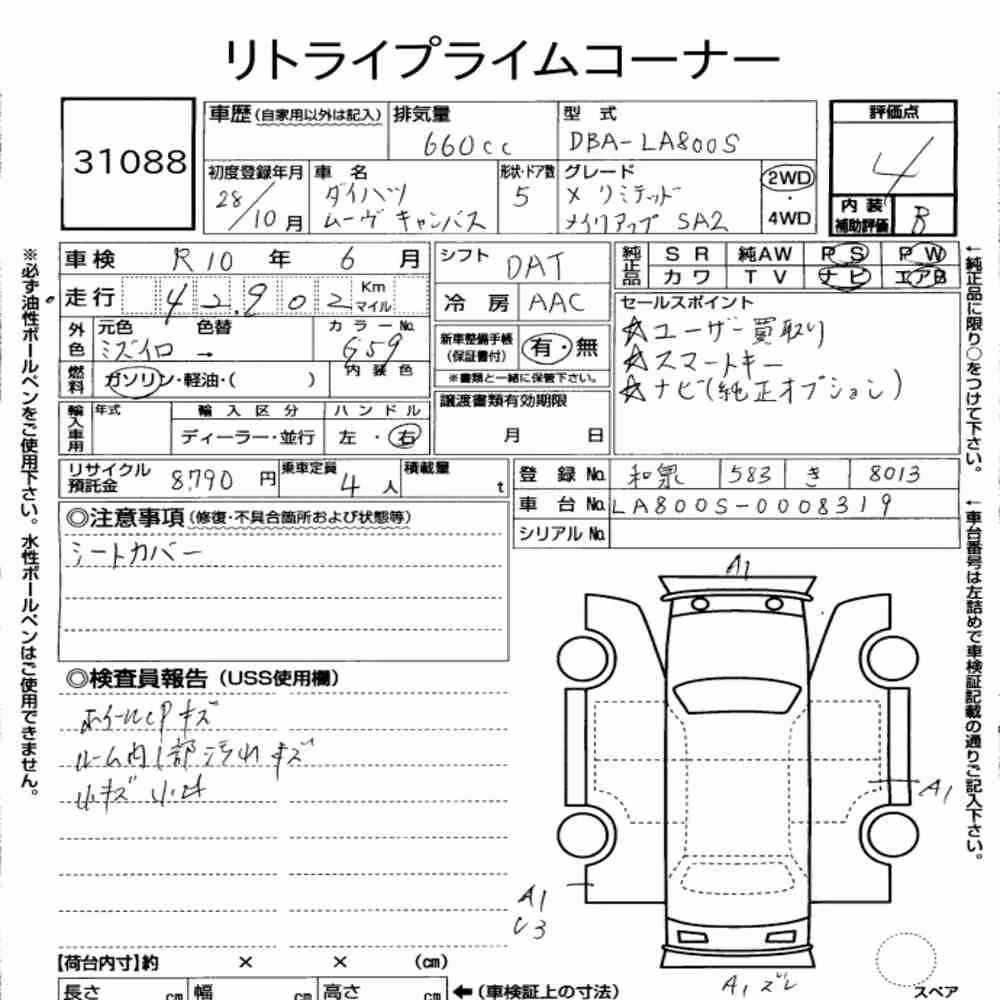 リトライプライムコーナー
31088
車歴(自家用以外は記入)
排気量
660cc
型 式
DBA-LA800S
評価点
4
初度登録年月
28/10 月
車 名
ダイハツ
ムーヴ キャンバス
形状・ドア数
5
グレード
X リミテッド
メイクアップ SA2
2WD
・
4WD
内 装
補助評価
B
車検 R10 年 6 月
シフト DAT
純正品
S R 純AW P S P W
カ ワ T V ナビ エアB
走行 42,902 Km マイル
冷 房 AAC
セールスポイント
☆ユーザー買取り
☆スマートキー
☆ナビ(純正オプション)
外色
元色 色替 カラーNo.
ミズイロ → G59
内 装 色
新車整備手帳
(保証書付)
有・無
※書類と一緒に保管下さい。
燃料
ガソリン・軽油・( )
譲渡書類有効期限
月 日
輸入車用
年式
輸 入 区 分
ハ ン ド ル
ディーラー・並行
左 ・ 右
リサイクル
預託金
8,790 円
乗車定員
4 人
積載量
t
登 録 No. 和泉 583 き 8013
車 台 No. LA800S-0008319
シリアル No.
◎注意事項(修復・不具合箇所および状態等)
シートカバー
◎検査員報告(USS使用欄)
ホイールCPキズ
ルーム内1部汚れ キズ
小キズ 小凹
A1
A1
A1
A1 ズレ
【荷台内寸】約 × × (cm)
長さ cm 幅 cm 高さ cm ←(車検証上の寸法)
スペア
※必ず油性ボールペンをご使用下さい。水性ボールペンはご使用できません。
←純正品に限り○をつけて下さい。
←車台番号は左詰めで車検証記載の通りご記入下さい。